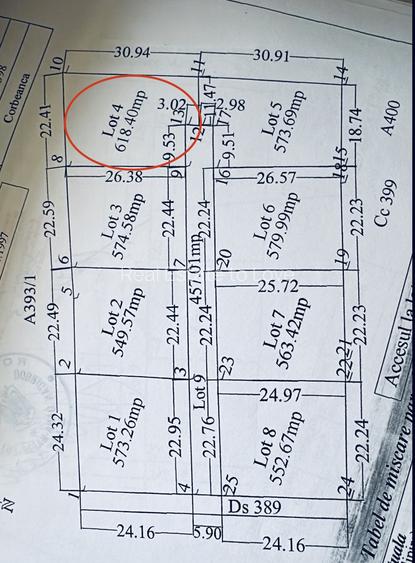 Corbeanca
30.94
30.91
10
11
14
22.41
Lot 4
618.40mp
3.02
2.98
Lot 5
573.69mp
18.74
A400
9.53
9.51
12
8
9
16
18
15
26.38
26.57
Cc 399
22.59
Lot 3
574.58mp
22.44
22.24
Lot 6
579.99mp
22.23
6
7
20
19
A393/1
5
457.01mp
25.72
22.49
Lot 2
549.57mp
22.44
22.24
Lot 7
563.42mp
22.23
2
3
23
22
21
24.97
Lot 9
24.32
Lot 1
573.26mp
22.95
22.76
Lot 8
552.67mp
22.24
1
4
25
24
Ds 389
24.16
5.90
24.16
Accesul la
Tabel de miscare
N